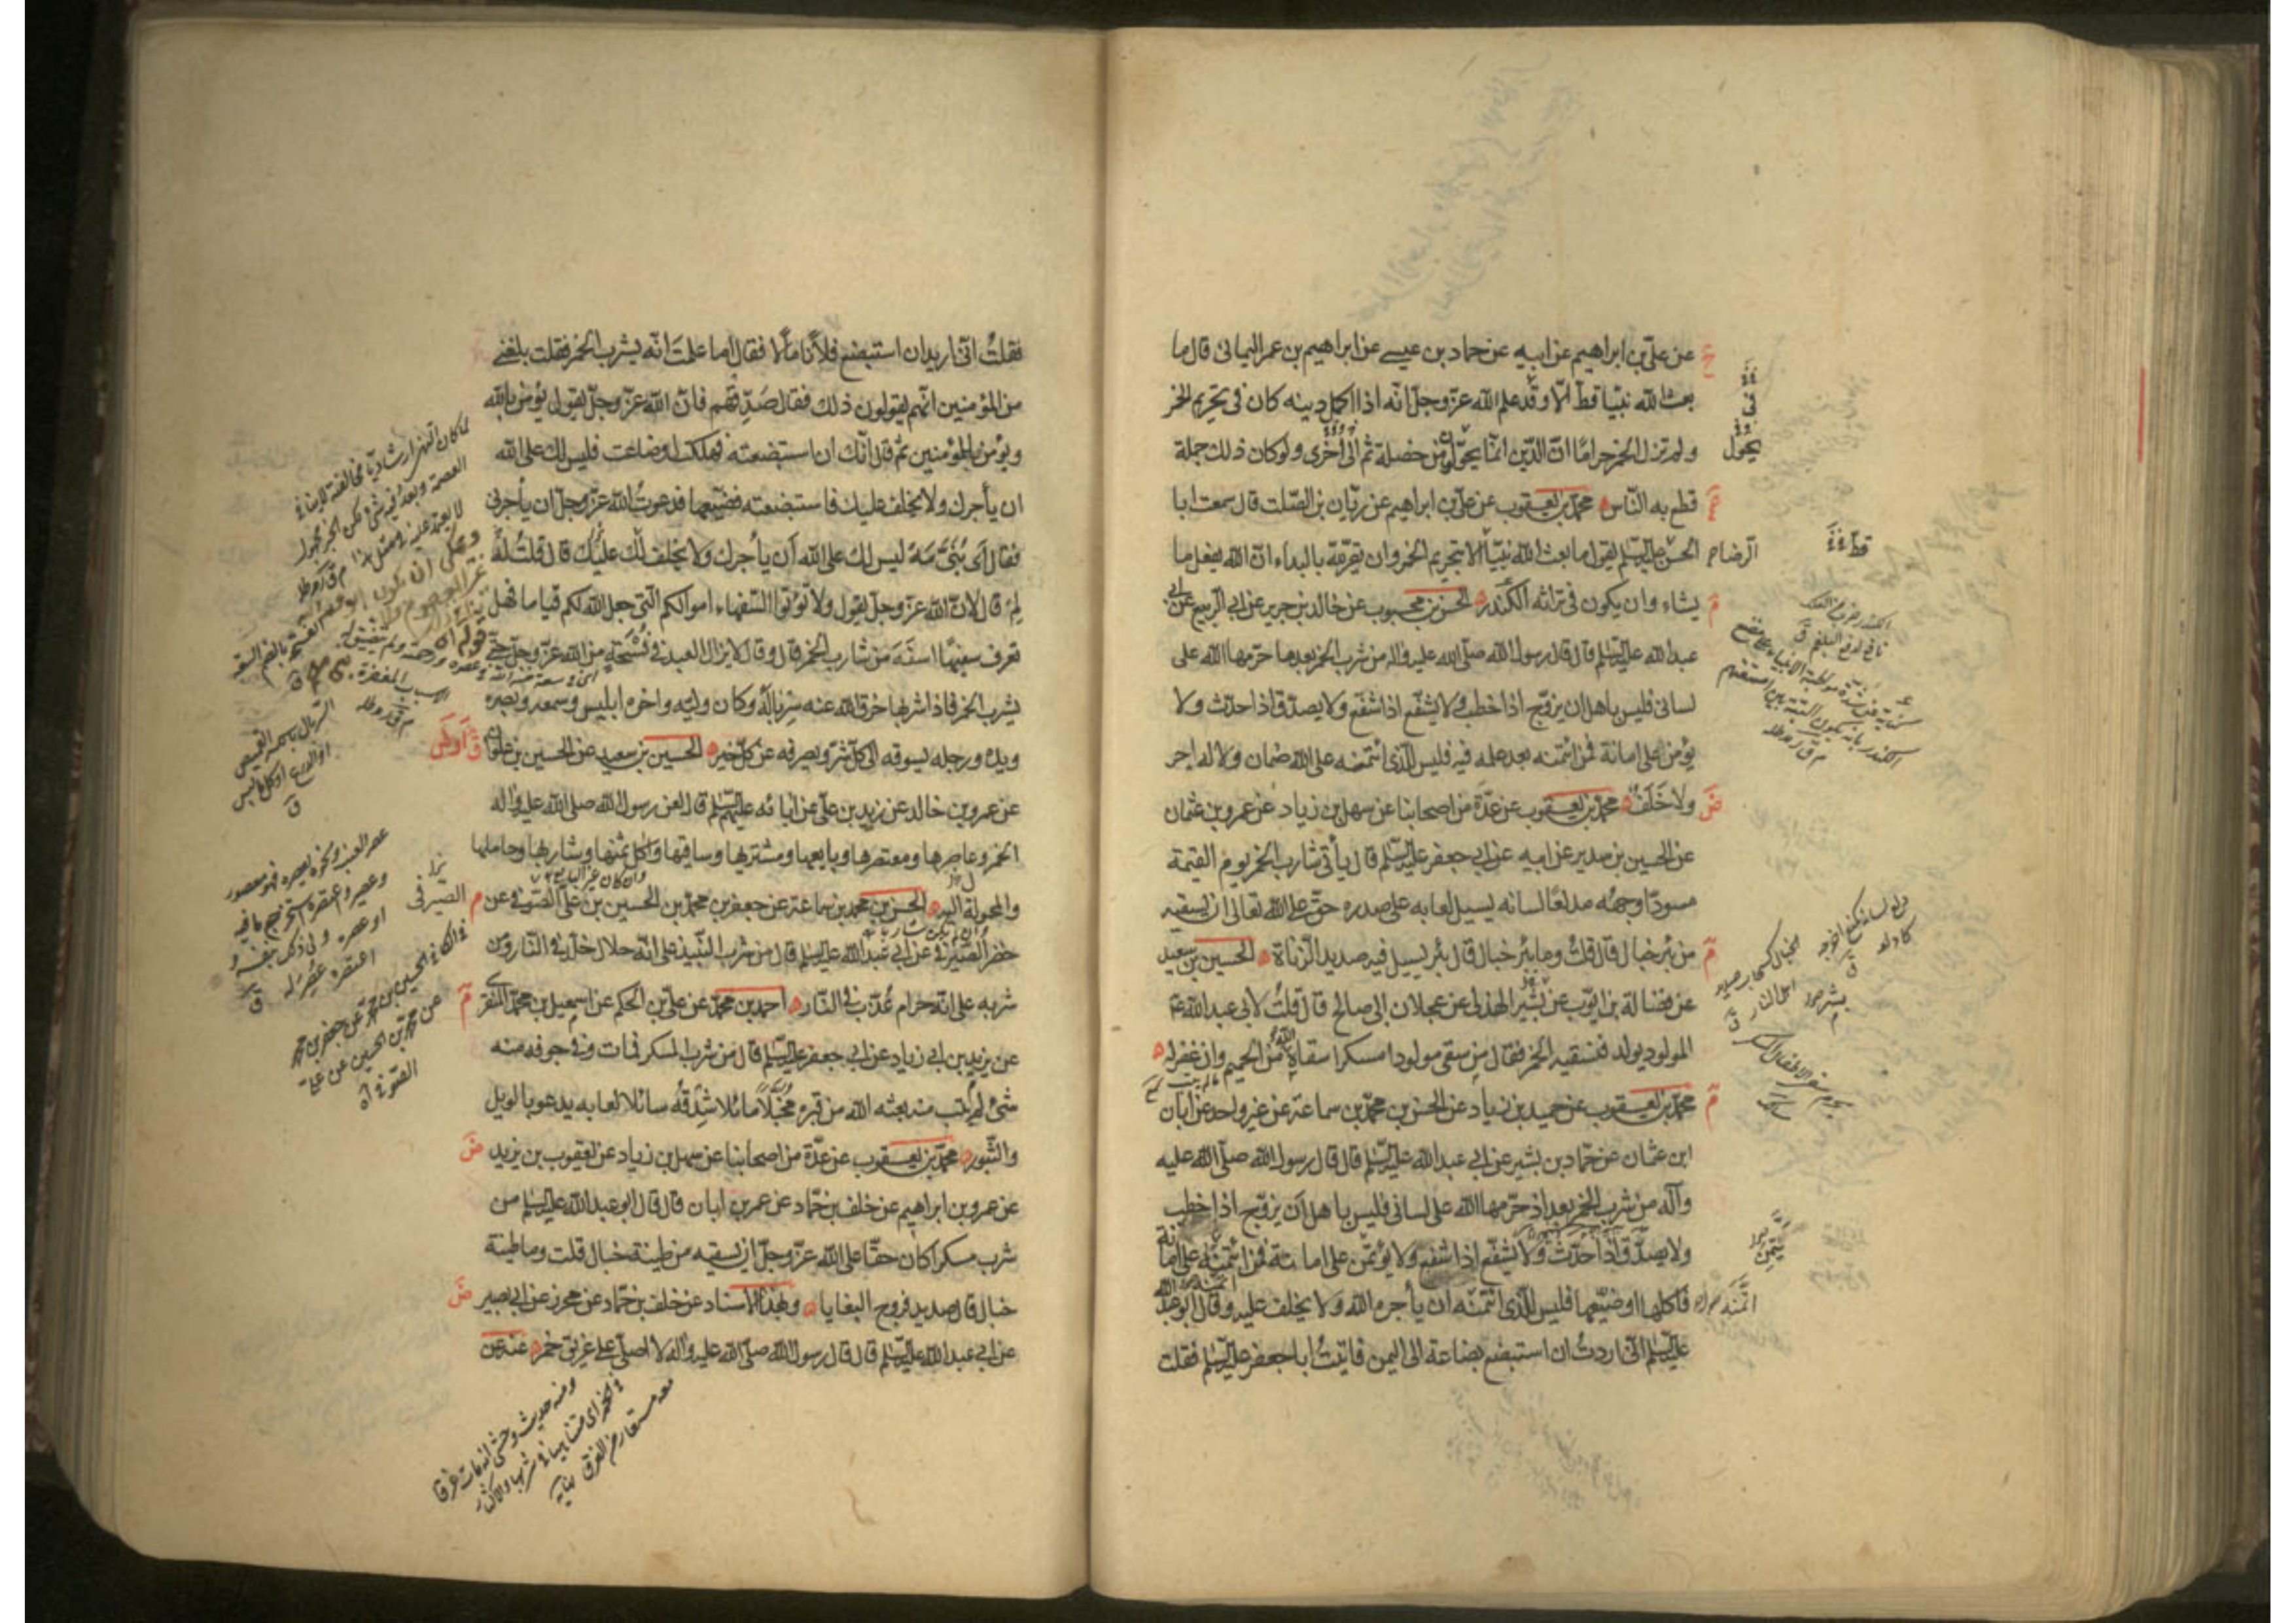 عن علي بن ابراهيم عن ابيه عن حماد بن عيسى عن ابراهيم بن عمر اليماني قال ما
بعث الله نبيّا قط الّا وقد علم الله عزّ وجلّ انه اذا اكمل دينه كان في تحريم الخمر
ولم تزل الخمر حرامًا انّ الدّين انّما يحوّل من خصلة ثم الى اخرى ولو كان ذلك جملة
قطع به النّاس محمّد بن يعقوب عن علي بن ابراهيم عن ريّان بن الصّلت قال سمعت ابا
الحسن عليه السّلم يقول ما بعث الله نبيّا الا بتحريم الخمر وان يقرّ له بالبداء انّ الله يفعل ما
يشاء وان يكون في تراثه الكندر الحسن بن محبوب عن خالد بن جرير عن ابي الربيع عن ابي
عبد الله عليه السّلم قال قال رسول الله صلّى الله عليه واله من شرب الخمر بعد ما حرّمها الله على
لساني فليس باهل ان يزوّج اذا خطب ولا يشفّع اذا شفع ولا يصدّق اذا حدّث ولا
يؤمن على امانة فمن ائتمنه بعد علمه فيه فليس للّذي ائتمنه على الله ضمان ولا له اجر
ولا خَلَف محمّد بن يعقوب عن عدّة من اصحابنا عن سهل بن زياد عن عمرو بن عثمان
عن الحسين بن سدير عن ابيه عن ابي جعفر عليه السّلم قال يأتي شارب الخمر يوم القيمة
مسودّا وجهُه مدلعًا لسانه يسيل لعابه على صدره حقّ على الله تعالى ان يسقيه
من بئر خبال قال قلتُ وما بئر خبال قال بئر يسيل فيه صديد الزّناة الحسين بن سعيد
عن فضالة بن ايّوب عن بشير الهذلي عن عجلان ابي صالح قال قلتُ لابي عبد الله ع
المولود يولد فنسقيه الخمر فقال من سقى مولودا مسكرا سقاه الله من الحميم وان غفر له
محمّد بن يعقوب عن حميد بن زياد عن الحسن بن محمّد بن سماعة عن غير واحد عن ابان
ابن عثمان عن حمّاد بن بشير عن ابي عبد الله عليه السّلم قال قال رسول الله صلّى الله عليه
وآله من شرب الخمر بعد اذ حرّمها الله على لساني فليس باهل ان يزوّج اذا خطب
ولا يصدّق اذا حدّث ولا يشفّع اذا شفع ولا يؤتمن على امانة فمن ائتمنه على امانة
فاكلها او ضيّعها فليس للّذي ائتمنه ان يأجره الله ولا يخلف عليه وقال ابو عبد الله
عليه السّلم انّي اردتُ ان استبضع بضاعة الى اليمن فاتيتُ ابا جعفر عليه السّلم فقلت
يحوّل
الرضا
فقلتُ انّي اريد ان استبضع فلانًا مالًا فقال اما علمتَ انّه يشرب الخمر فقلت بلغني
من المؤمنين انّهم يقولون ذلك فقال صَدِّقهم فانّ الله عزّ وجلّ يقول يؤمن بالله
ويؤمن للمؤمنين ثم قال انّك ان استبضعته فهلكت او ضاعت فليس لك على الله
ان يأجرك ولا يخلف عليك فاستبضعته فضيّعها فدعوتُ الله عزّ وجلّ ان يأجرني
فقال اى بُنَيّ مَه ليس لك على الله أن يأجرك ولا يخلف عليك قال قلتُ له
لِمَ قال لانّ الله عزّ وجلّ يقول ولا تؤتوا السّفهاء اموالكم الّتي جعل الله لكم قياما فهل
تعرف سفيهًا اسفَه من شارب الخمر قال وقال لا يزال العبد في فُسْحَة من الله عزّ وجلّ حتّى
يشرب الخمر فاذا شربها خرق الله عنه سِرباله وكان وليّه واخوه ابليس وسمعه وبصره
ويده ورجله يسوقه الى كلّ شرّ ويصرفه عن كلّ خير الحسين بن سعيد عن الحسين بن علوان
عن عمرو بن خالد عن زيد بن علي عن ابائه عليهم السّلم قال لعن رسول الله صلى الله عليه واله
الخمر وعاصرها ومعتصرها وبايعها ومشتريها وساقيها واكل ثمنها وشاربها وحاملها
والمحمولة اليه الحسن بن محمّد بن سماعة عن جعفر بن محمّد بن الحسين بن علي الصّوفي عن
خضر الصّيرفي عن ابي عبد الله عليه السلم قال من شرب النّبيذ على انّه حلال خلّد في النّار ومن
شربه على انّه حرام عُذّب في النّار احمد بن محمّد عن علي بن الحكم عن اسمعيل بن محمّد المنقري
عن يزيد بن ابي زياد عن ابي جعفر عليه السّلم قال من شرب المسكر فمات وفي جوفه منه
شئ لم يتب منه بعثه الله من قبره مخبّلًا مائلا شِدْقُه سائلا لعابه يدعو بالويل
والثّبور محمّد بن يعقوب عن عدّة من اصحابنا عن سهل بن زياد عن يعقوب بن يزيد
عن عمرو بن ابراهيم عن خلف بن حمّاد عن عمر بن ابان قال قال ابو عبد الله عليه السلم من
شرب مسكرا كان حقّا على الله عزّ وجلّ ان يسقيه من طينة خبال قلت وما طينة
خبال قال صديد فروج البغايا وبهذا الاسناد عن خلف بن حمّاد عن محرز عن ابي بصير
عن ابي عبد الله عليه السّلم قال قال رسول الله صلّى الله عليه واله لا اصلّي على غريق خمر عنه عن
الصيرفى
ومنه حديث وحشى انه مات غرقا
في الخمر اى متناهيا في شربها والاكثار
منه مستعار من الغرق نهاية